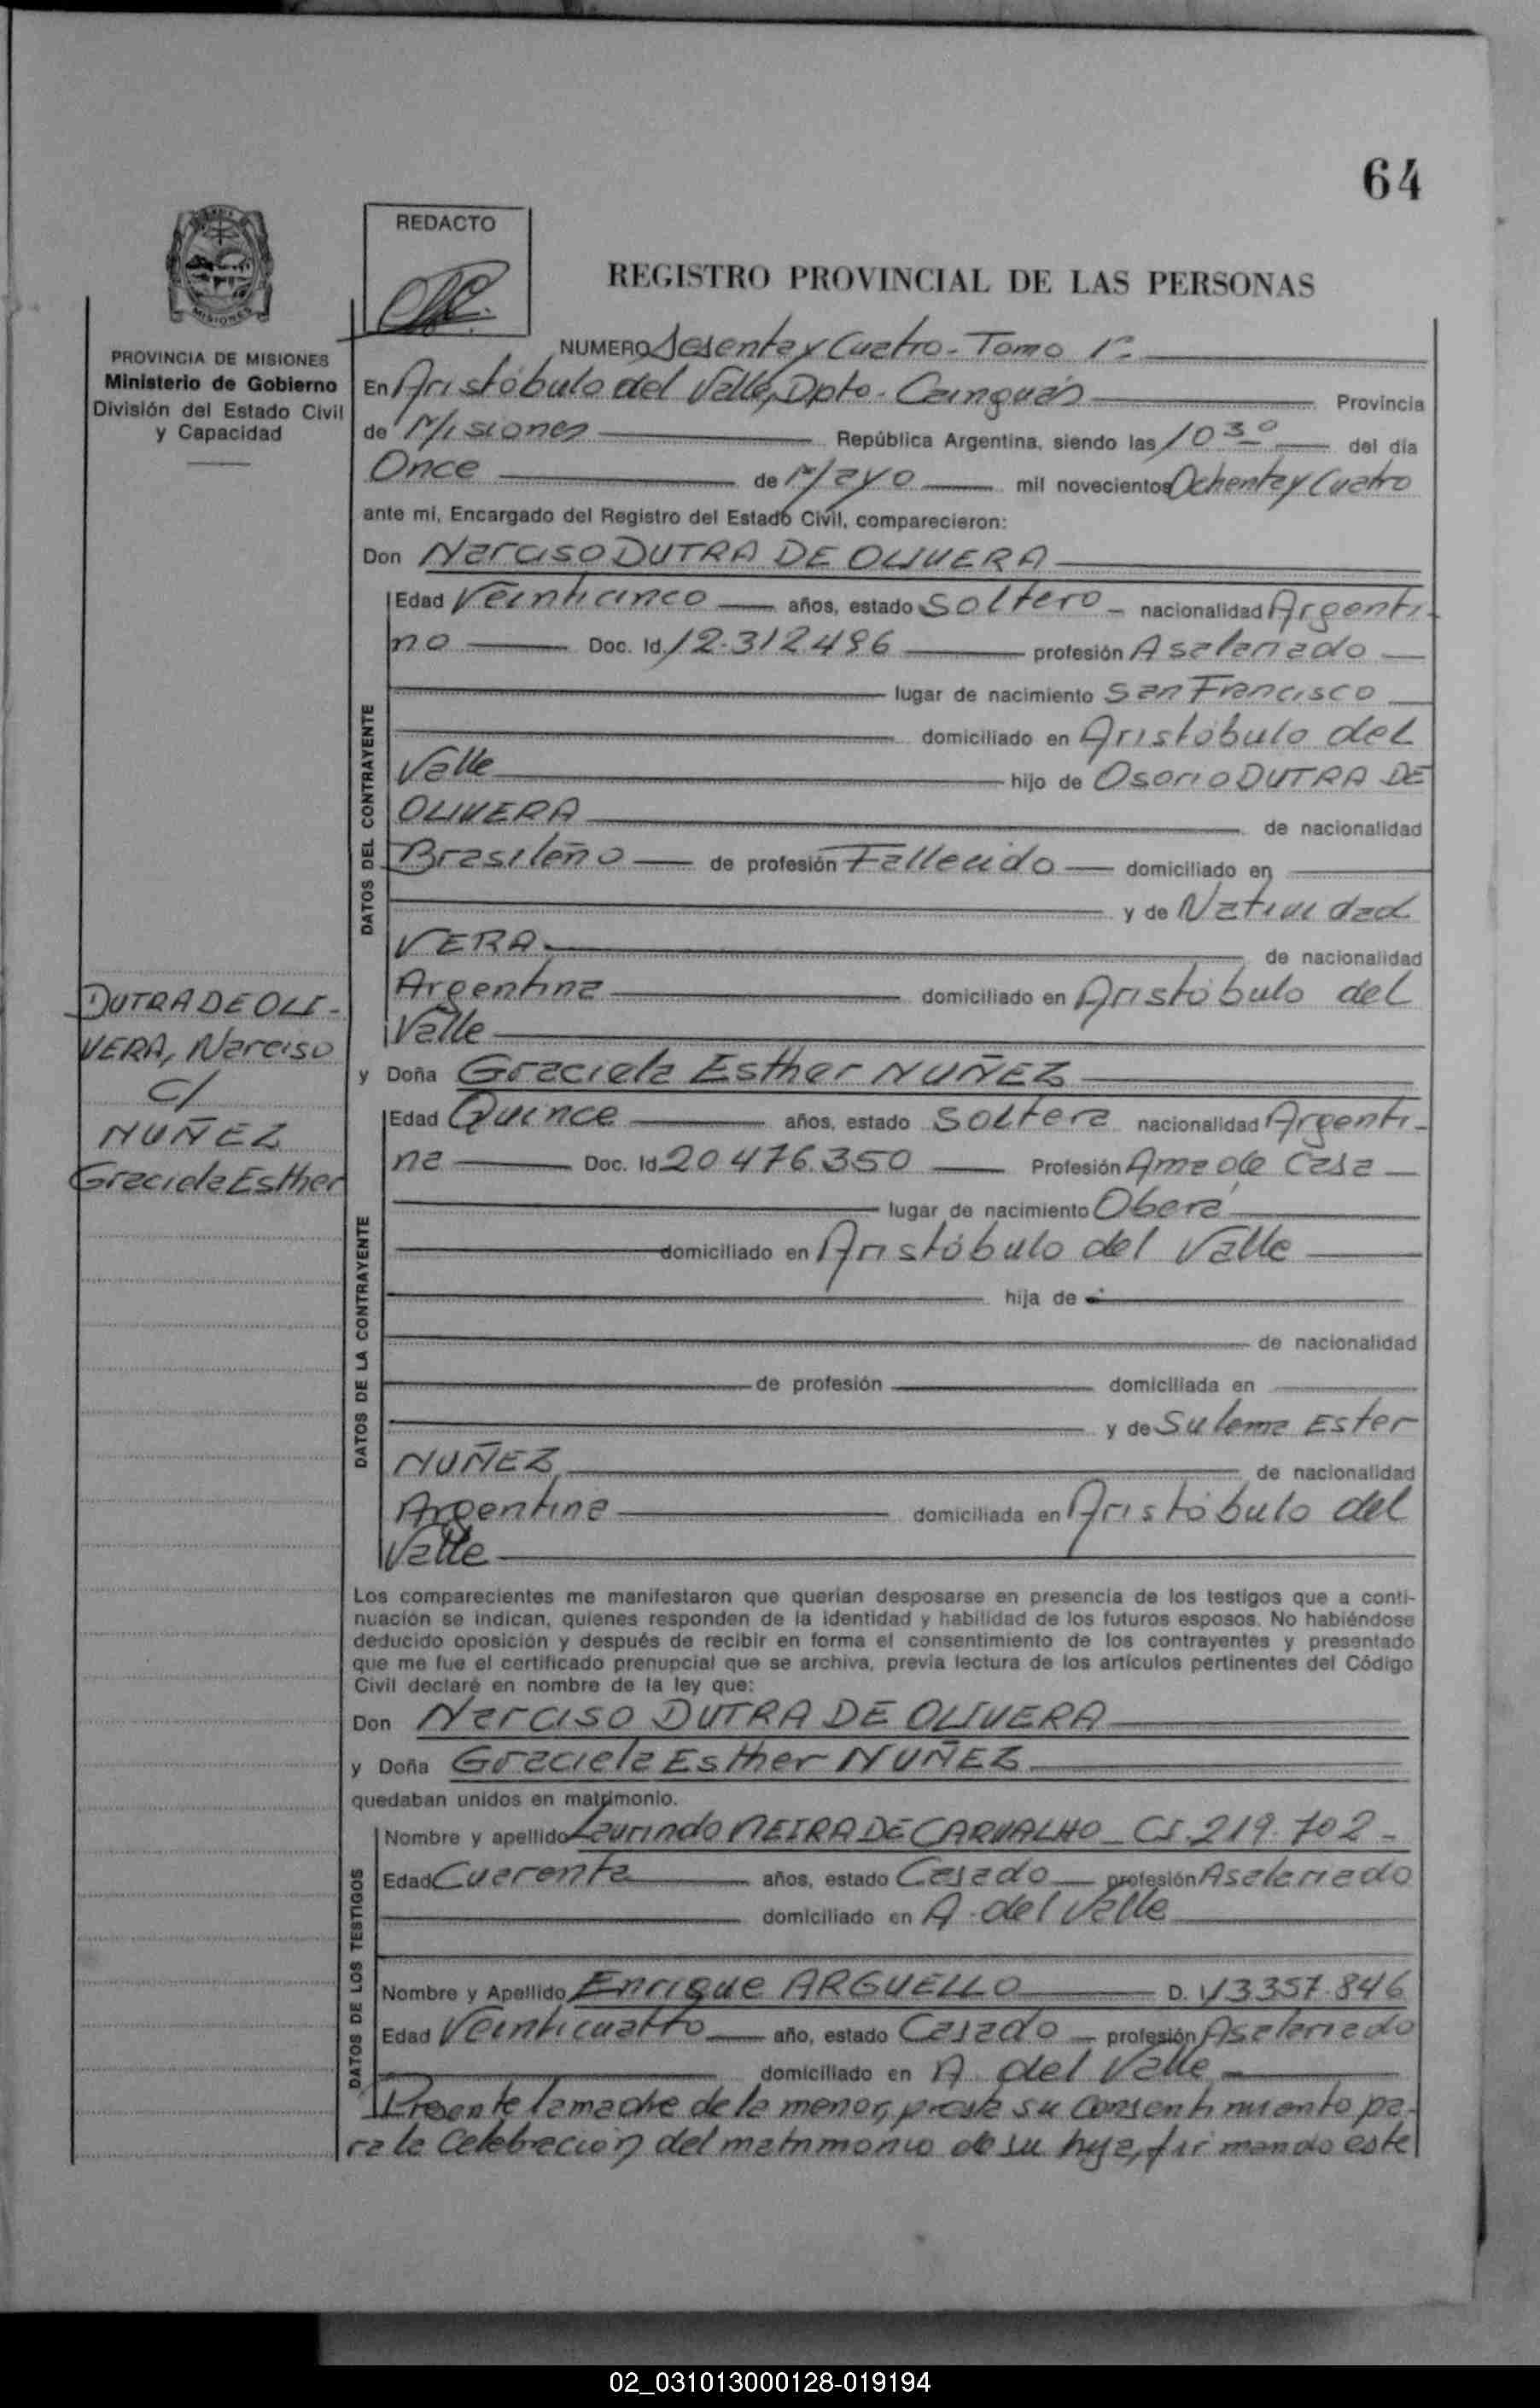 64
REDACTO
REGISTRO PROVINCIAL DE LAS PERSONAS
MISIONES
PROVINCIA DE MISIONES
Ministerio de Gobierno
División del Estado Civil
y Capacidad
NUMERO Sesenta y Cuatro - Tomo 1º
En Aristóbulo del Valle, Dpto. Cainguás Provincia
de Misiones República Argentina, siendo las 10 30 del día
Once de Mayo mil novecientos Ochenta y Cuatro
ante mí, Encargado del Registro del Estado Civil, comparecieron:
Don Narciso DUTRA DE OLIVERA
DATOS DEL CONTRAYENTE
Edad Veinticinco años, estado Soltero nacionalidad Argenti-
no Doc. Id. 12.312496 profesión Asalariado
lugar de nacimiento San Francisco
domiciliado en Aristóbulo del
Valle hijo de Osorio DUTRA DE
OLIVERA de nacionalidad
Brasileño de profesión Fallecido domiciliado en
y de Natividad
VERA de nacionalidad
Argentina domiciliado en Aristóbulo del
Valle
DUTRA DE OLI-
VERA, Narciso
C/
NUÑEZ
Graciela Esther
y Doña Graciela Esther NUÑEZ
DATOS DE LA CONTRAYENTE
Edad Quince años, estado Soltera nacionalidad Argenti-
na Doc. Id. 20 476.350 Profesión Ama de Casa
lugar de nacimiento Oberá
domiciliado en Aristóbulo del Valle
hija de
de nacionalidad
de profesión domiciliada en
y de Sulema Ester
NUÑEZ de nacionalidad
Argentina domiciliada en Aristóbulo del
Valle
Los comparecientes me manifestaron que querían desposarse en presencia de los testigos que a conti-
nuación se indican, quienes responden de la identidad y habilidad de los futuros esposos. No habiéndose
deducido oposición y después de recibir en forma el consentimiento de los contrayentes y presentado
que me fue el certificado prenupcial que se archiva, previa lectura de los artículos pertinentes del Código
Civil declaré en nombre de la ley que:
Don Narciso DUTRA DE OLIVERA
y Doña Graciela Esther NUÑEZ
quedaban unidos en matrimonio.
DATOS DE LOS TESTIGOS
Nombre y apellido Laurindo NEIRA DE CARVALHO - CI. 219.702 -
Edad Cuarenta años, estado Casado profesión Asalariado
domiciliado en A. del Valle
Nombre y Apellido Enrique ARGUELLO D. I. 13357.846
Edad Veinticuatro año, estado Casado profesión Asalariado
domiciliado en A. del Valle
Presente la madre de la menor, presta su consentimiento pa-
ra la Celebración del matrimonio de su hija, firmando este
02_031013000128-019194